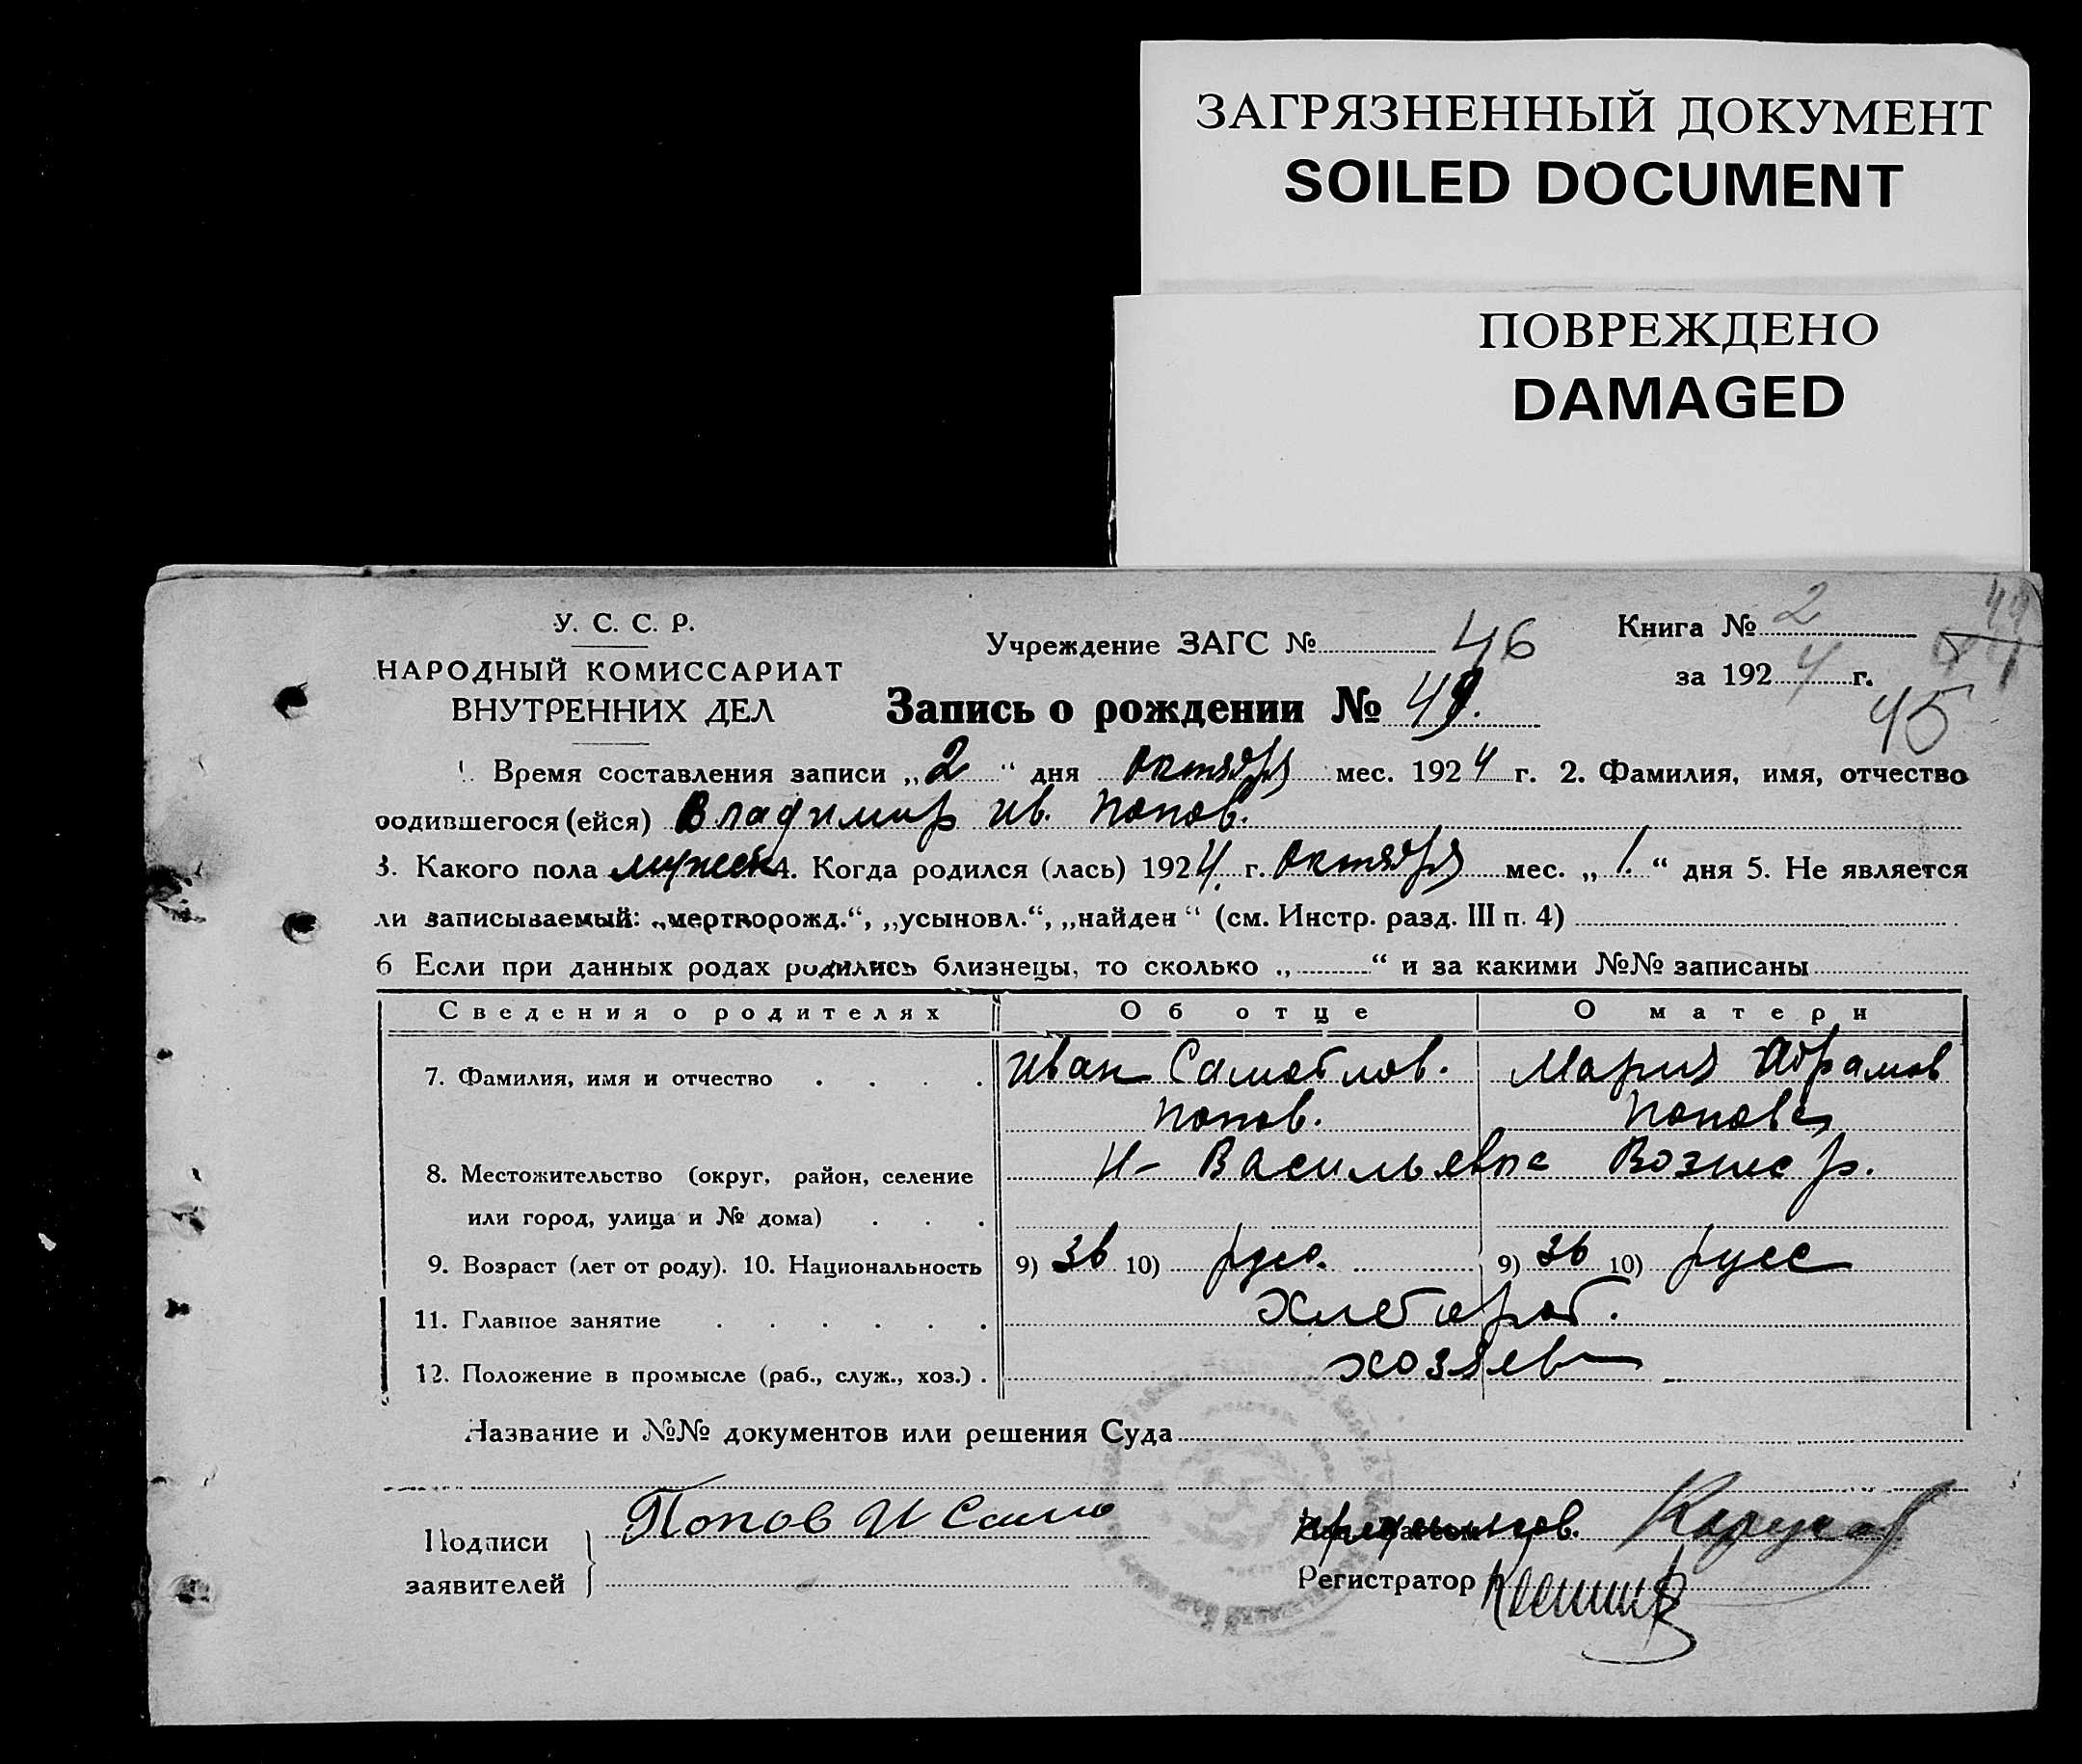 ЗАГРЯЗНЕННЫЙ ДОКУМЕНТ
SOILED DOCUMENT
ПОВРЕЖДЕНО
DAMAGED
У. С. С. Р.
НАРОДНЫЙ КОМИССАРИАТ
ВНУТРЕННИХ ДЕЛ
Учреждение ЗАГС № 46
Книга № 2
за 1924 г.
45
Запись о рождении № 49.
1. Время составления записи „2“ дня октября мес. 1924 г. 2. Фамилия, имя, отчество
родившегося (ейся) Владимир Ив. Попов.
3. Какого пола мужск 4. Когда родился (лась) 1924 г. октября мес. „1“ дня 5. Не является
ли записываемый: „мертворожд.“, „усыновл.“, „найден“ (см. Инстр. разд. III п. 4)
6 Если при данных родах родились близнецы, то сколько „ “ и за какими №№ записаны
Сведения о родителях Об отце О матери
7. Фамилия, имя и отчество Иван Самойлов. Мария Абрамов
Попов. Попова
8. Местожительство (округ, район, селение Н-Васильевке Вознес р.
или город, улица и № дома)
9. Возраст (лет от роду). 10. Национальность 9) 36 10) русс. 9) 36 10) русс
11. Главное занятие хлебороб.
12. Положение в промысле (раб., служ., хоз.) хозяев
Название и №№ документов или решения Суда
Подписи Попов И Само
заявителей
Регистратор